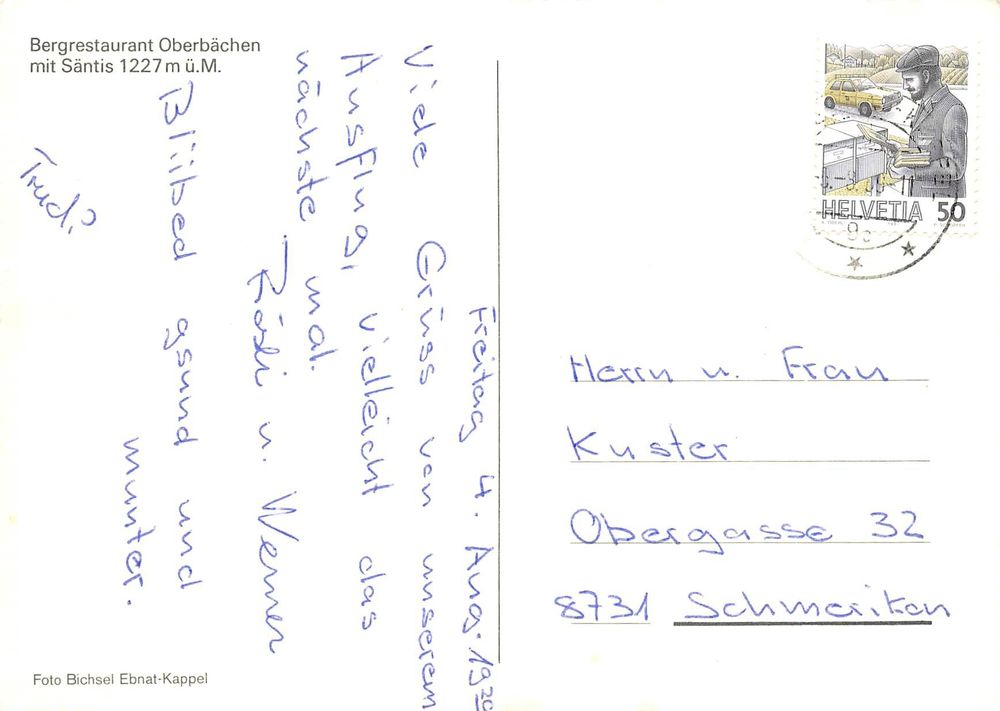 Bergrestaurant Oberbächen
mit Säntis 1227 m ü.M.
Freitag 4. Aug. 19³⁰
Viele Grüss von unserem
Ausflug, vielleicht das
nächste mal.
Rösli u. Werner
Bliibed gsund und
munter.
Trudi
HELVETIA 50
Herrn u. Frau
Kuster
Obergasse 32
8731 Schmerikon
Foto Bichsel Ebnat-Kappel